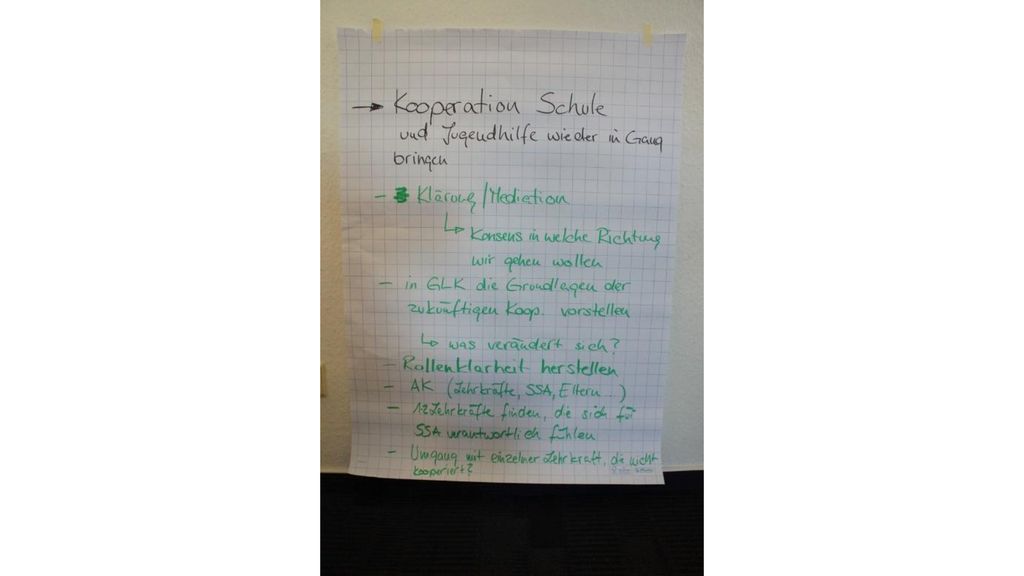 → Kooperation Schule
und Jugendhilfe wieder in Gang
bringen
- Klärung/Mediation
↳ Konsens in welche Richtung
wir gehen wollen
- in GLK die Grundlagen der
zukünftigen Koop. vorstellen
↳ was verändert sich?
- Rollenklarheit herstellen
- AK (Lehrkräfte, SSA, Eltern...)
- 1-2 Lehrkräfte finden, die sich für
SSA verantwortlich fühlen
- Umgang mit einzelner Lehrkraft, die nicht
kooperiert?